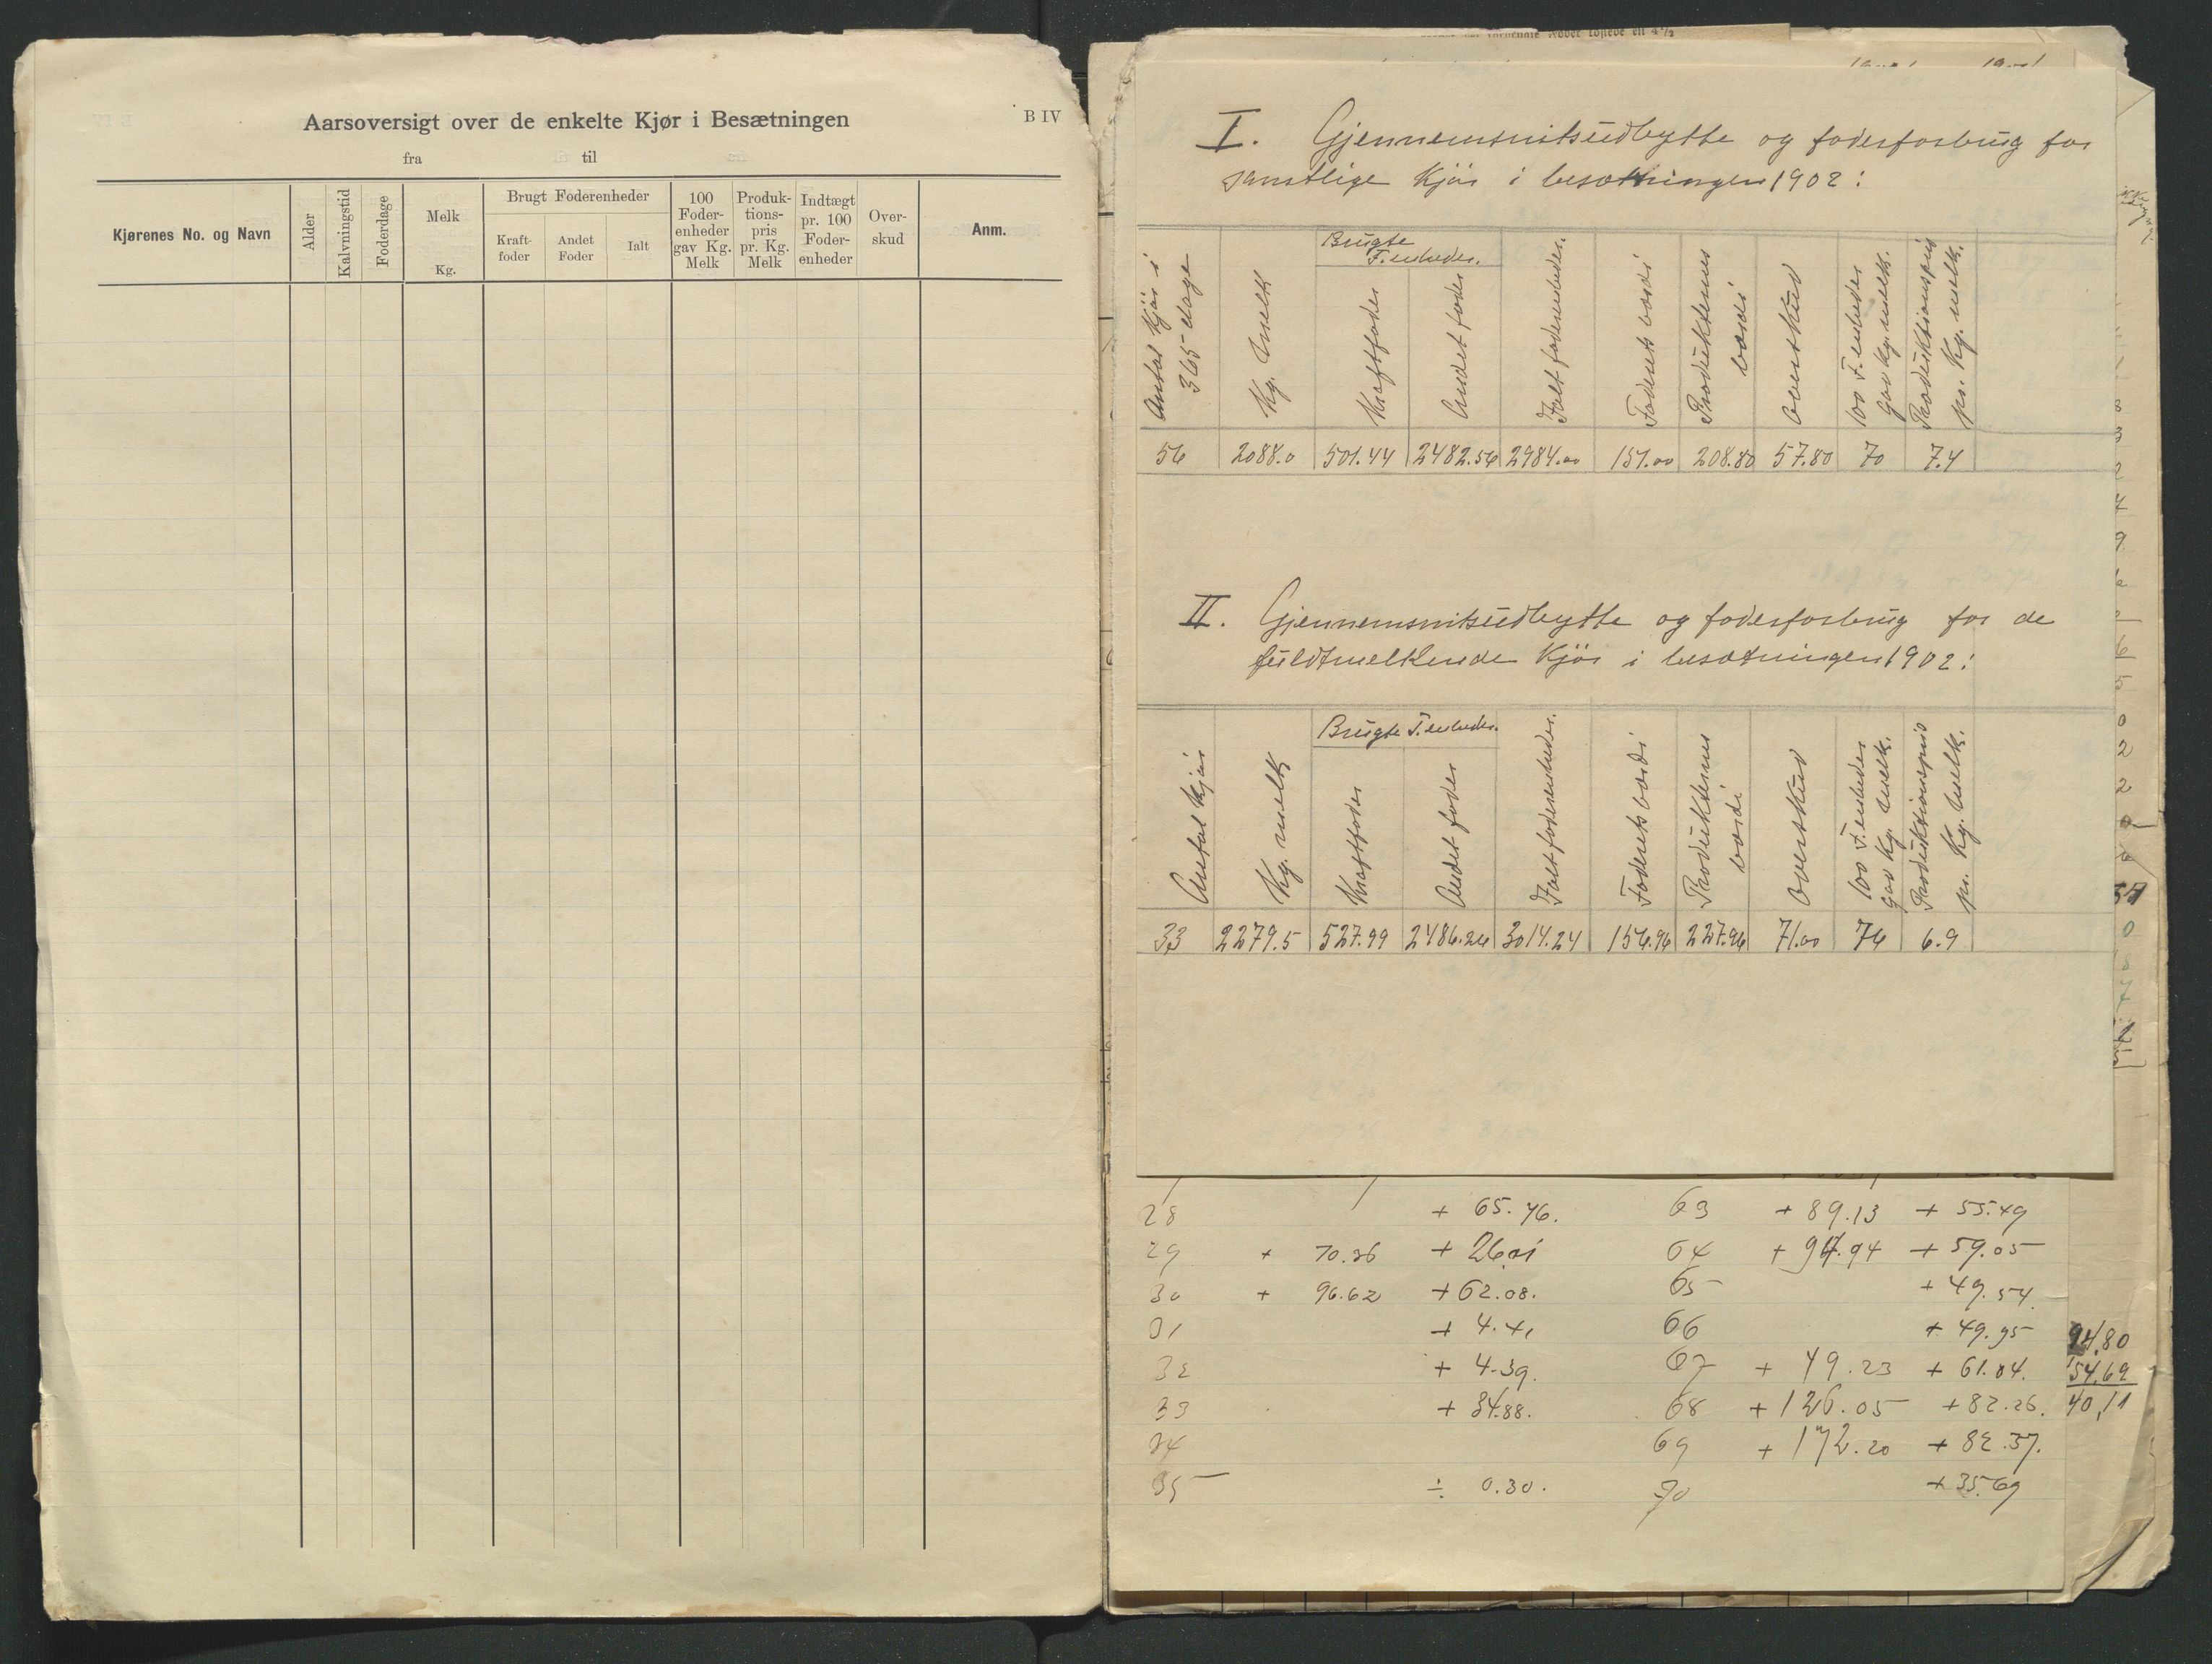 Aarsoversigt over de enkelte Kjør i Besætningen
B IV
fra til
Kjørenes No. og Navn
Alder
Kalvningstid
Foderdage
Melk
Kg.
Brugt Foderenheder
Kraft-
foder
Andet
Foder
Ialt
100
Foder-
enheder
gav Kg.
Melk
Produk-
tions-
pris
pr. Kg.
Melk
Indtægt
pr. 100
Foder-
enheder
Over-
skud
Anm.
I. Gjennemsnitsudbytte og foderforbrug for
samtlige kjør i besætningen 1902:
Antal kjør i
365 dage
Kg. melk
Brugte
F.enheder.
Kraftfoder
Andet foder
Ialt foderenheder.
Foderets værdi
Produkternes
værdi
Overskud
100 F.enheder
gav kg. melk.
Produktionspris
pr. Kg. melk.
56 2088.0 501.44 2482.56 2984.00 151.00 208.80 57.80 70 7.4
II. Gjennemsnitsudbytte og foderforbrug for de
fuldtmelkende kjør i besætningen 1902:
Antal kjør
Kg. melk
Brugte F.enheder.
Kraftfoder
Andet foder
Ialt foderenheder.
Foderets værdi
Produkternes
værdi
Overskud
100 F.enheder
gav Kg. melk.
Produktionspris
pr. Kg. melk.
33 2279.5 527.99 2486.26 3014.24 156.96 227.96 71.00 76 6.9
28 + 65.76. 63 + 89.13 + 55.49
29 + 70.36 + 26.01 64 + 94.94 + 59.05
30 + 96.62 + 62.08. 65 + 49.54.
31 + 4.41 66 + 49.95
32 + 4.39. 67 + 79.23 + 61.04.
33 + 34.88. 68 + 126.05 + 82.26.
34 69 + 172.20 + 82.37.
35 ÷ 0.30. 70 + 35.69
94,80
54,69
40,11